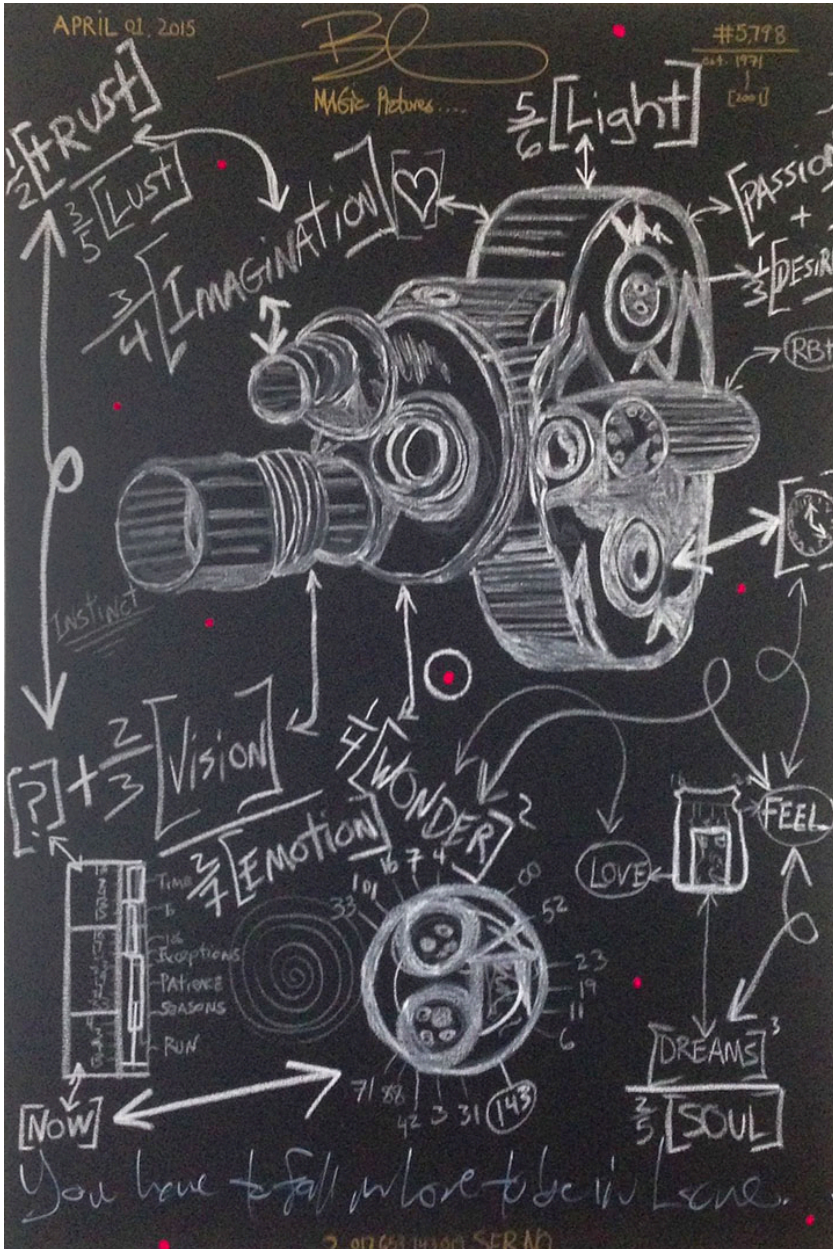 APRIL 01, 2015
MAGic Pictures....
#5,798
est. 1971
[2001]
1/2 [tRUSt]
3/5 [LUST]
3/4 [IMAGINATION]
5/6 [Light]
[PASSION
+
1/3 [DESIR
RB+
Instinct
[?] + 2/3 [Vision]
2/7 [EMOTION]
1/4 [WONDER]2
FEEL
LOVE
TIME
Exceptions
PATIENCE
SEASONS
RUN
33
101
16
7
4
52
23
19
11
6
143
31
3
42
88
71
[NOW]
[DREAMS]3
2/5 [SOUL]
You have to fall in love to be in Love.
SER.NO